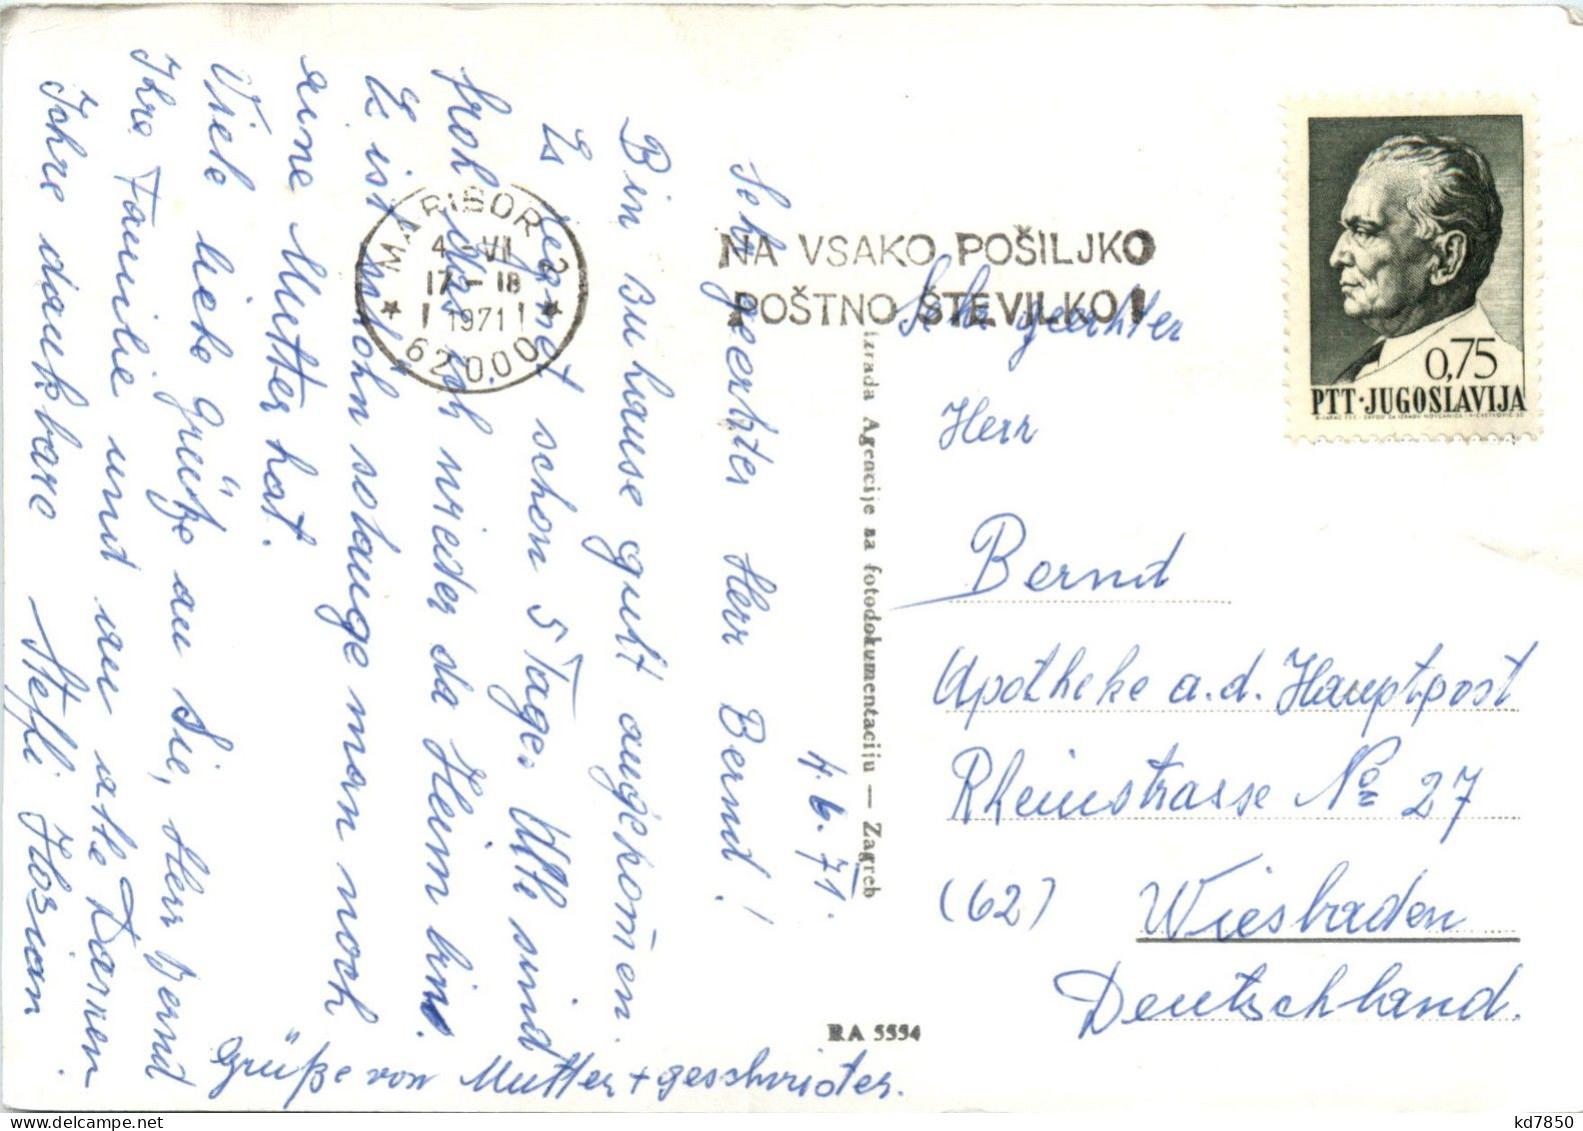 4.6.71.
Seh geerhter Herr Bernd!
Bin zu hause guht angekomen.
Es regnet schon 5 Tage. Alle sind
froh das ich wieder da Heim bin.
Es ist schöhn solange man noch
eine Mutter hat.
Viele liebe Grüße an Sie, Herr Bernd
Ihre Familie und an alle Damen.
Ihre dankbare Steffi Florian
Grüße von Mutter + geschwister.
MARIBOR 2
4 -VII
17-18
1971
62000
NA VSAKO POŠILJKO
POŠTNO ŠTEVILKO!
0,75
PTT·JUGOSLAVIJA
Izrada Agencije za fotodokumentaciju — Zagreb
RA 5554
Sehr geerhter
Herr
Bernd
Apotheke a.d. Hauptpost
Rheinstrasse No 27
(62) Wiesbaden
Deutschland.
kd7850